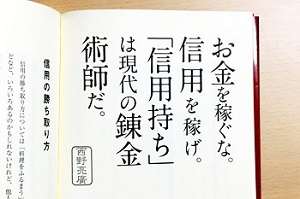 お金を稼ぐな。
信用を稼げ。
「信用持ち」
は現代の錬金
術師だ。
西野亮廣
信用の勝ち取り方
信用の勝ち取り方については「料理をふるまう」
などなど、いろいろあるのかもしれないけれど、他